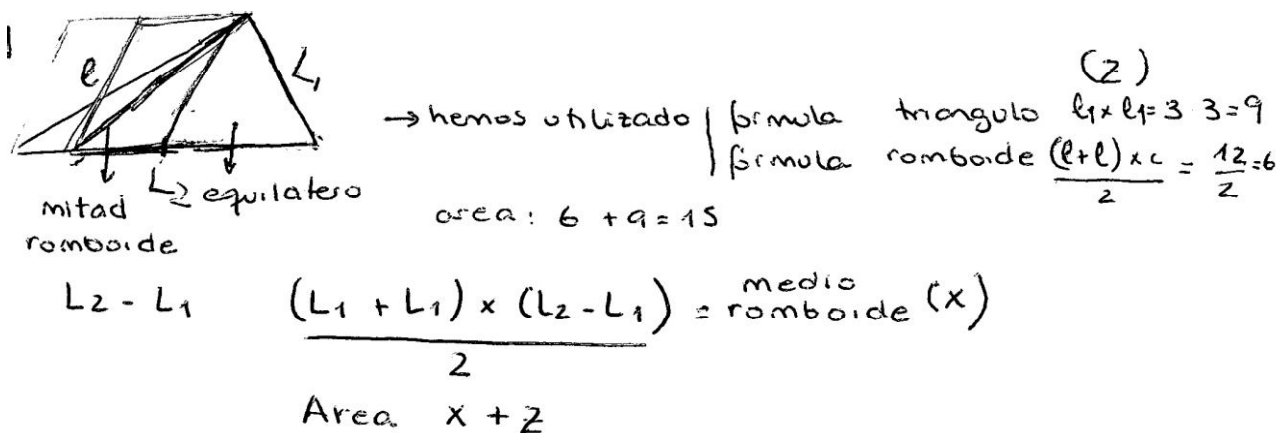 1
l
L₁
L₂
mitad
romboide
equilatero
→ hemos utilizado
(z)
fórmula triangulo l₁ x l₁ = 3 · 3 = 9
fórmula romboide (l+l) x c / 2 = 12 / 2 = 6
area: 6 + 9 = 15
L2 - L1
(L1 + L1) x (L2 - L1) / 2 = medio romboide (x)
Area x + z